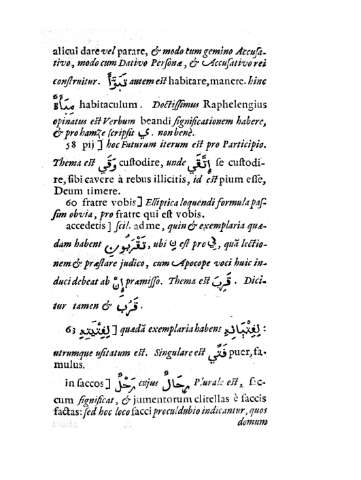 alicui dare vel parare, & modo tum gemino Accusa-
tivo, modo cum Dativo Personæ, & Accusativo rei
construitur. تَبَوَّأَ autem est habitare, manere. hinc
مَبَاءَةٌ habitaculum. Doctissimus Raphelengius
opinatus est Verbum beandi significationem habere,
& pro hamze scripsit ي. non benè.
58 pij] hoc Futurum iterum est pro Participio.
Thema est وَقَي custodire, unde إِتَّقَي se custodi-
re, sibi cavere à rebus illicitis, id est pium esse,
Deum timere.
60 fratre vobis] Elliptica loquendi formula pas-
sim obvia, pro fratre qui est vobis.
accedetis] scil. ad me, quin & exemplaria quæ-
dam habent تَقْرَبُونِ, ubi نِ est pro نِي, quâ lectio-
nem & præstare judico, cum Apocope voci huic in-
duci debeat ab إِنْ præmisso. Thema est قَرِبَ. Dici-
tur tamen & قَرُبَ.
63 لِفِتْيَتِهِ] quædā exemplaria habens لِفِتْيَانِهِ:
utrumque usitatum est. Singulare est فَتًي puer, fa-
mulus.
in saccos] رَحْلٌ cujus رِحَالٌ Plurale est, sac-
cum significat, & jumentorum clitellas è saccis
factas: sed hoc loco sacci proculdubio indicantur, quos
domum